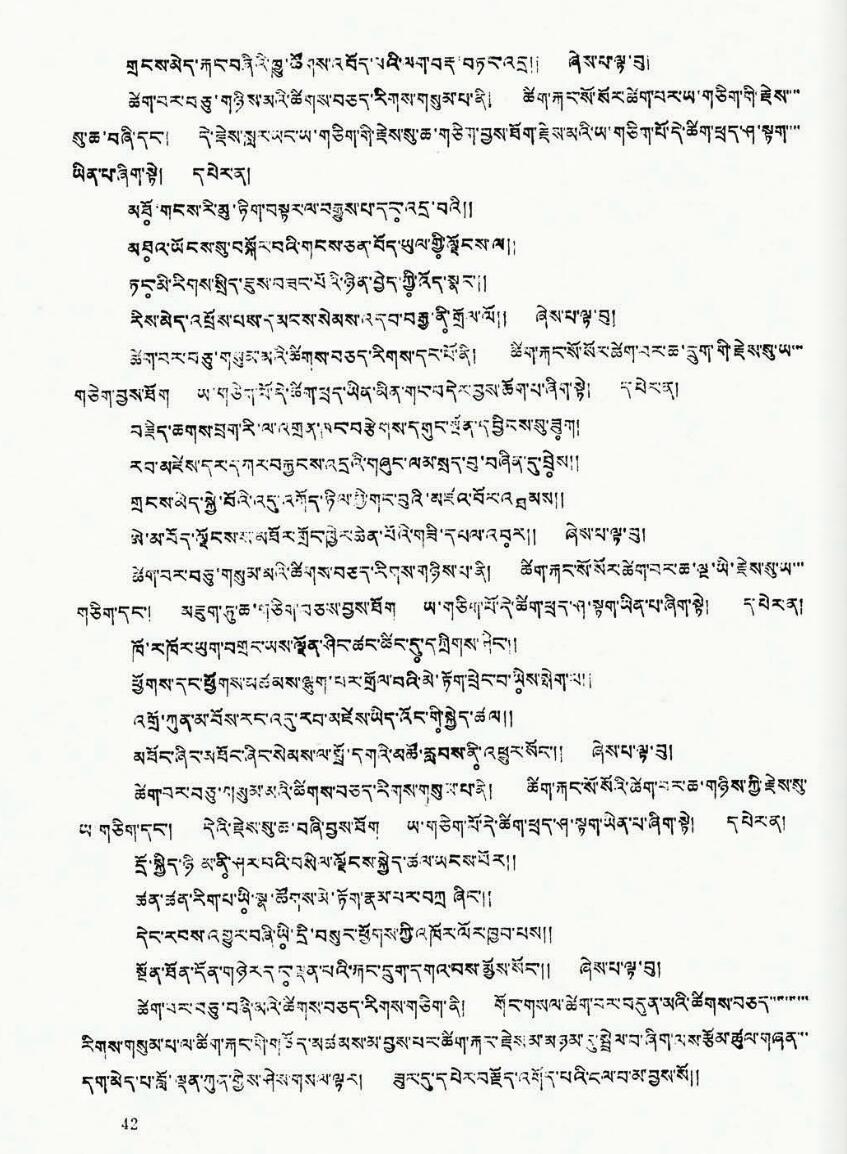 གྲངས་མེད་རྐང་བཞིའི་ཁྱུ་ཚོགས་འབོད་པའི་ལག་བརྡ་བཏང་འདྲ།། ཞེས་པ་ལྟ་བུ།
ཚིག་བར་བཅུ་གཉིས་མའི་ཚིགས་བཅད་རིགས་གསུམ་པ་ནི། ཚིག་རྐང་སོ་སོར་ཚེག་བར་ཡ་གཅིག་གི་རྗེས་
སུ་ཆ་བཞི་དང་། དེ་རྗེས་སླར་ཡང་ཡ་གཅིག་གི་རྗེས་སུ་ཆ་གཅིག་བྱས་ཐོག་རྗེས་མའི་ཡ་གཅིག་པོ་དེ་ཚིག་ཕྲད་ཤ་སྟག་
ཡིན་པ་ཞིག་སྟེ། དཔེར་ན།
མཐོ་གངས་རི་མུ་ཏིག་བསྟར་ལ་བརྒྱུས་པ་དང་འདྲ་བའི།།
མཐའ་ཡོངས་སུ་བསྐོར་བའི་གངས་ཅན་བོད་ཡུལ་གྱི་ལྗོངས་ལ།།
ཏང་མི་རིགས་སྲིད་ཇུས་བཟང་པོའི་ཉིན་བྱེད་ཀྱི་འོད་སྣང་།།
རིས་མེད་འཕྲོས་པས་དམངས་སེམས་འདབ་བརྒྱ་ནི་གྲོལ་ལོ།། ཞེས་པ་ལྟ་བུ།
ཚེག་བར་བཅུ་གསུམ་མའི་ཚིགས་བཅད་རིགས་དང་པོ་ནི། ཚིག་རྐང་སོ་སོར་ཚེག་བར་ཆ་དྲུག་གི་རྗེས་སུ་ཡ་
གཅིག་བྱས་ཐོག ཡ་གཅིག་པོ་དེ་ཚིག་ཕྲད་ཡིན་མིན་གང་བདེར་བྱས་ཆོག་པ་ཞིག་སྟེ། དཔེར་ན།
བརྗིད་ཆགས་བྲག་རི་ལ་འགྲན་ཁང་བརྩེགས་དགུང་སྔོན་དབྱིངས་སུ་ཟུག།
རབ་མཛེས་དར་དཀར་བརྐྱངས་འདྲའི་གཞུང་ལམ་སྲད་བུ་བཞིན་དུ་བྲེས།།
གྲངས་མེད་སྐྱེ་བོའི་འདུ་འགོད་ཏིལ་གྱི་གང་བུའི་མཛའ་བོར་འགྲམས།།
ཨེ་མ་བོད་ལྗོངས་ས་མཐོར་གྲོང་ཁྱེར་ཆེན་པོའི་གཟི་དཔལ་འབར།། ཞེས་པ་ལྟ་བུ།
ཚེག་བར་བཅུ་གསུམ་མའི་ཚིགས་བཅད་རིགས་གཉིས་པ་ནི། ཚིག་རྐང་སོ་སོར་ཚེག་བར་ཆ་ལྔ་ཡི་རྗེས་སུ་ཡ་
གཅིག་དང་། མཇུག་ཏུ་ཆ་གཅིག་བཅས་བྱས་ཐོག ཡ་གཅིག་པོ་དེ་ཚིག་ཕྲད་ཤ་སྟག་ཡིན་པ་ཞིག་སྟེ། དཔེར་ན།
ཁོ་ར་ཁོར་ཡུག་བགྲང་ཡས་ལྗོན་ཤིང་ཚང་ཚིང་དུ་དཀྲིགས་ཤིང་།།
ཕྱོགས་དང་ཕྱོགས་མཚམས་ལྷུག་པར་གྲོལ་བའི་མེ་ཏོག་ཕྲེང་བ་ཡིས་སྤེག་ལ།།
འགྲོ་ཀུན་མ་བོས་རང་འདུ་རབ་མཛེས་ཡིད་འོང་གི་སྐྱེད་ཚལ།།
མཐོང་ཞིང་མཐོང་ཞིང་སེམས་ལ་སྤྲོ་དགའི་མཚོ་རླབས་ནི་འཕྱུར་སོང་།། ཞེས་པ་ལྟ་བུ།
ཚེག་བར་བཅུ་གསུམ་མའི་ཚིགས་བཅད་རིགས་གསུམ་པ་ནི། ཚིག་རྐང་སོ་སོའི་ཚེག་བར་ཆ་གཉིས་ཀྱི་རྗེས་སུ་
ཡ་གཅིག་དང་། དེའི་རྗེས་སུ་ཆ་བཞི་བྱས་ཐོག ཡ་གཅིག་པོ་དེ་ཚིག་ཕྲད་ཤ་སྟག་ཡིན་པ་ཞིག་སྟེ། དཔེར་ན།
དྲོ་སྐྱིད་ཉི་མ་ནི་ཤར་བའི་བསིལ་ལྗོངས་སྐྱེད་ཚལ་ཡངས་པོར།།
ཚན་ཚན་རིག་པ་ཡི་ལྷ་ཚོགས་མེ་ཏོག་རྣམ་པར་བཀྲ་ཞིང་།།
དེང་རབས་འགྱུར་བཞི་ཡི་དྲི་བསུང་ཕྱོགས་ཀྱི་འཁོར་ལོར་ཁྱབ་པས།།
སློན་ཐོན་དོན་གཉེར་དང་ལྡན་པའི་རྐང་དྲུག་དགའ་བས་མྱོས་སོང་།། ཞེས་པ་ལྟ་བུ།
ཚེག་བར་བཅུ་བཞི་མའི་ཚིགས་བཅད་རིགས་གཅིག་ནི། གོང་གསལ་ཚེག་བར་བདུན་མའི་ཚིགས་བཅད་
རིགས་གསུམ་པ་ལ་ཚིག་རྐང་གི་གཅོད་མཚམས་མ་བྱས་པར་ཚིག་རྐང་རྗེས་མ་མཉམ་དུ་སྤྲེལ་བ་ཞིག་ལས་རྩོམ་ཚུལ་གཞན་
དག་མེད་པ་བློ་ལྡན་ཀུན་གྱིས་ཤེས་གསལ་ལྟར། ཟུར་དུ་དཔེར་བརྗོད་འགོད་པའི་ངལ་བ་མ་བྱས་སོ།།
42